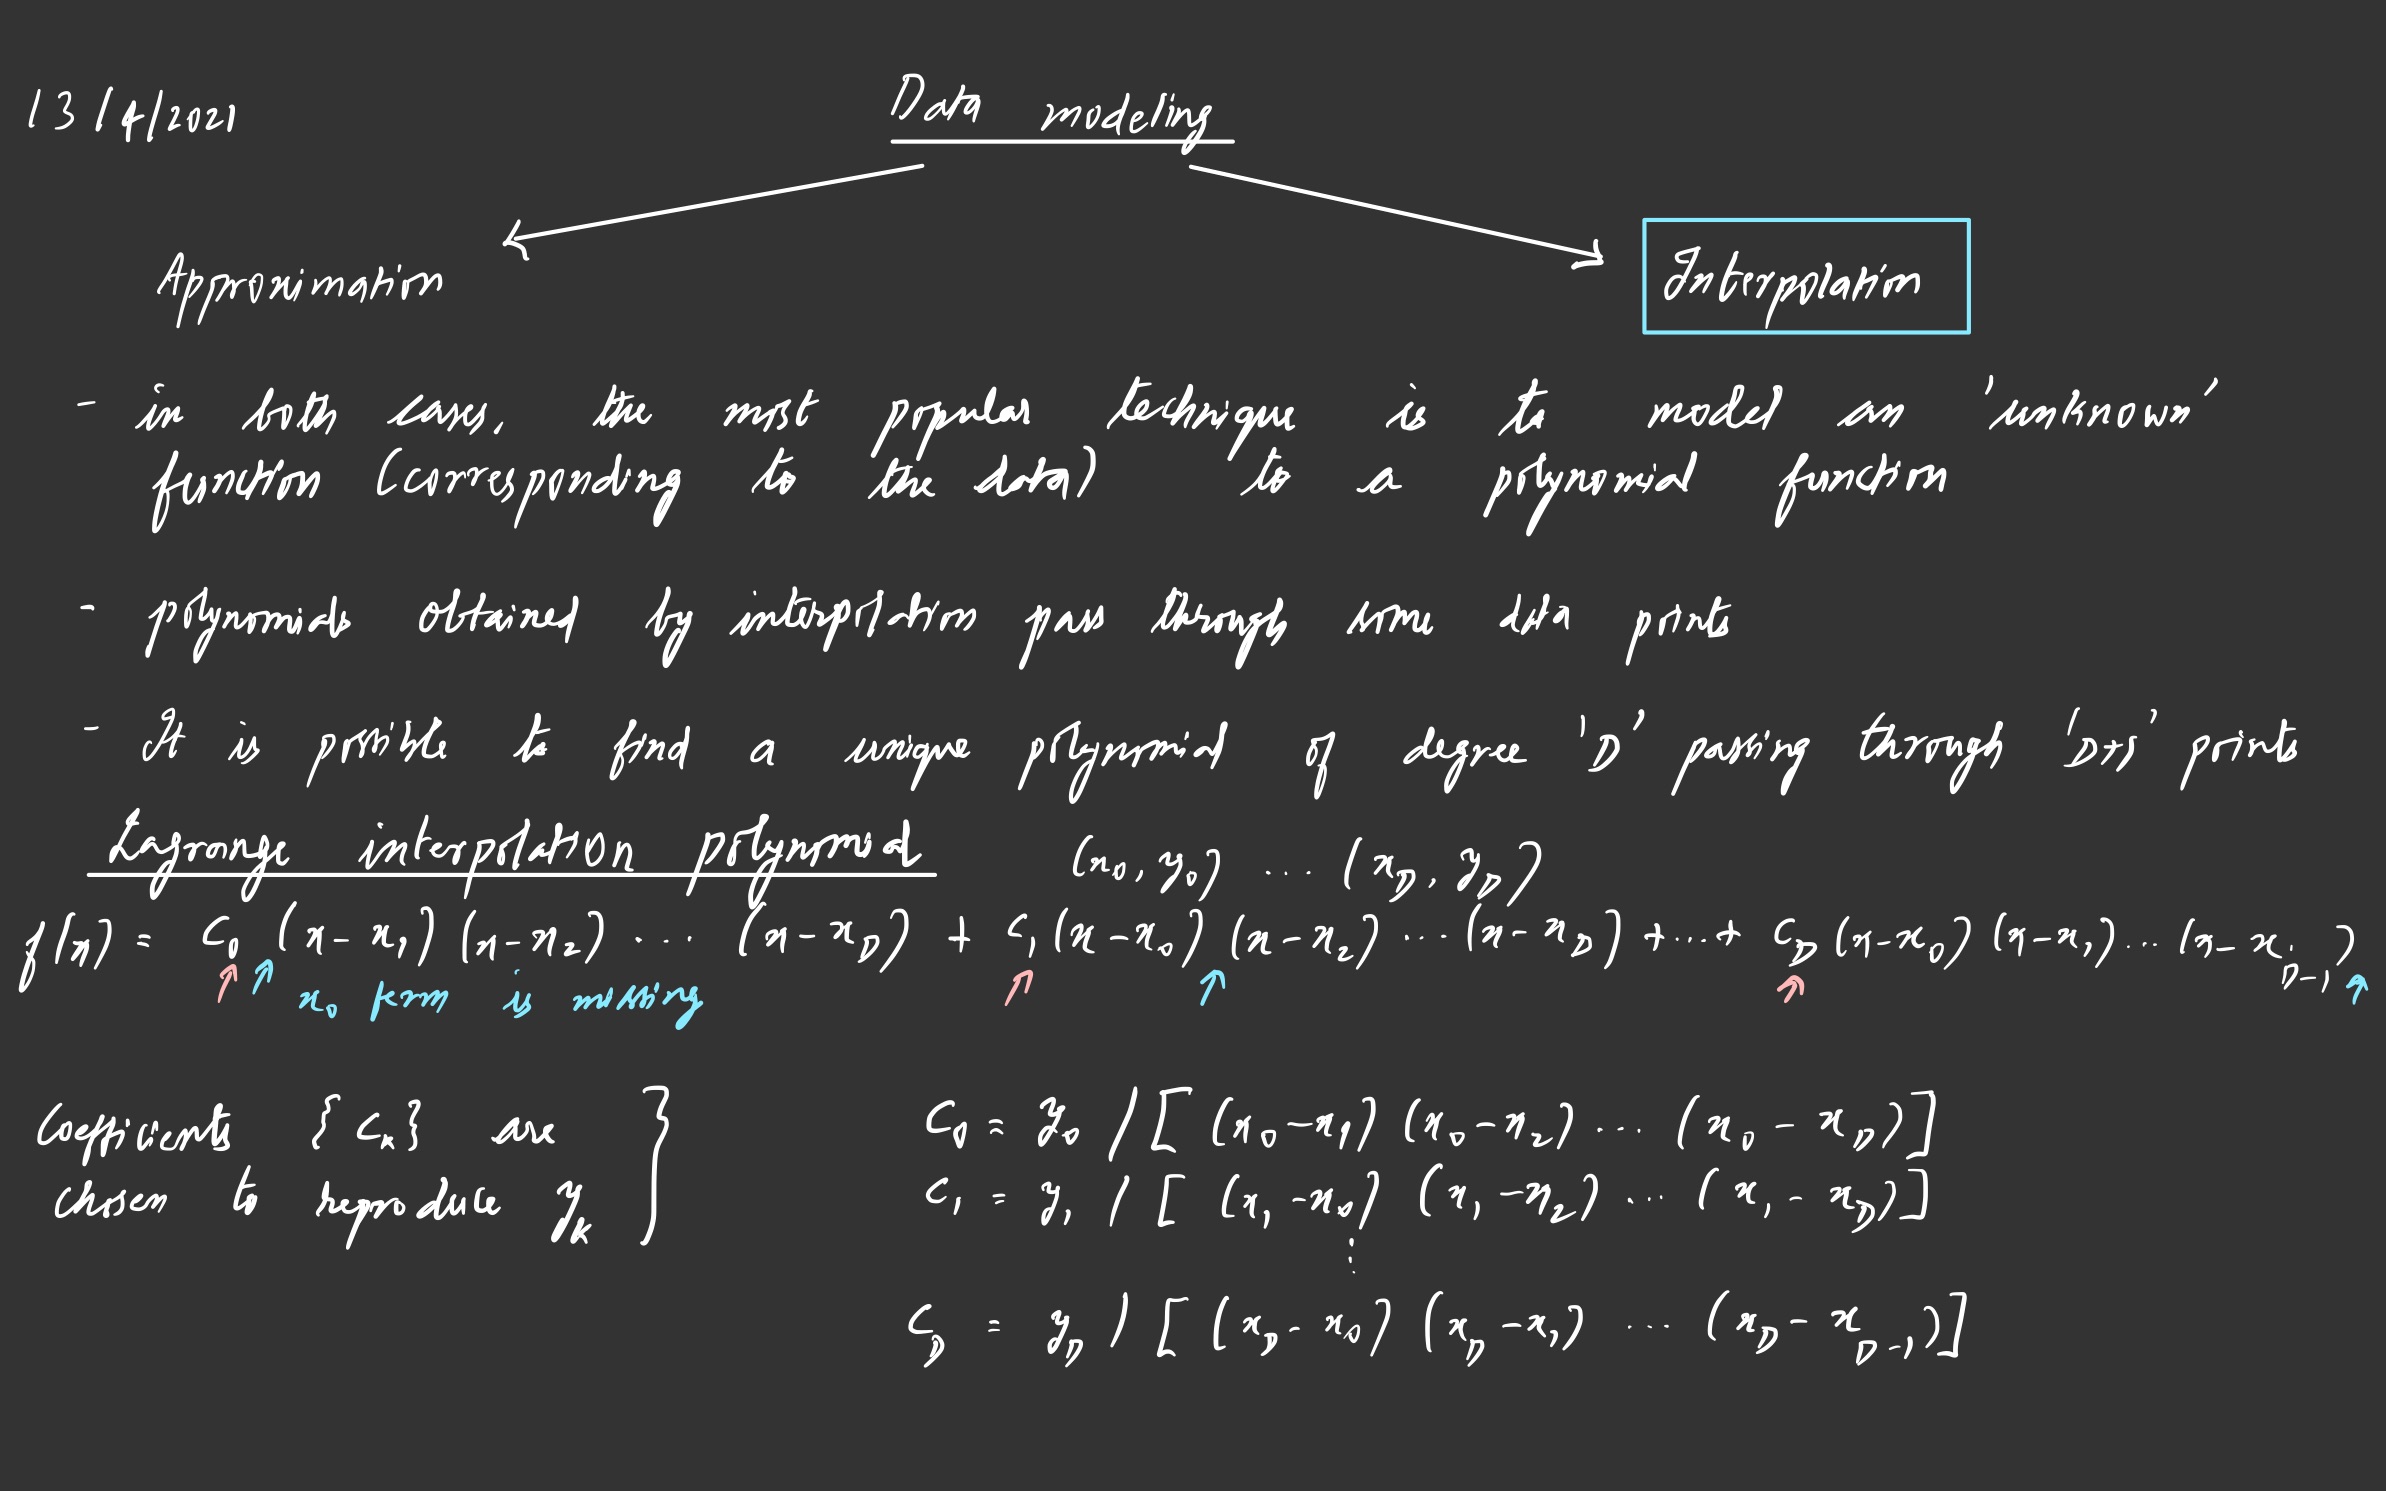 13/4/2021
Data modeling
Approximation
Interpolation
- in both cases, the most popular technique is to model an 'unknown'
function (corresponding to the data) to a polynomial function
- polynomials obtained by interpolation pass through some data points
- It is possible to find a unique polynomial of degree 'D' passing through 'D+1' points
Lagrange interpolation polynomial (x₀, y₀) ... (x_D, y_D)
f(x) = C₀ (x - x₁) (x - x₂) ... (x - x_D) + C₁ (x - x₀) (x - x₂) ... (x - x_D) + ... + C_D (x - x₀) (x - x₁) ... (x - x_D-1)
x₀ term is missing
Coefficients {C_k} are
chosen to reproduce y_k
C₀ = y₀ / [ (x₀ - x₁) (x₀ - x₂) ... (x₀ - x_D) ]
C₁ = y₁ / [ (x₁ - x₀) (x₁ - x₂) ... (x₁ - x_D) ]
⋮
C_D = y_D / [ (x_D - x₀) (x_D - x₁) ... (x_D - x_D-1) ]